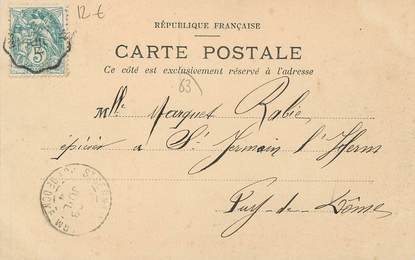 12 €
5
RÉPUBLIQUE FRANÇAISE
CARTE POSTALE
Ce côté est exclusivement réservé à l'adresse
63)
Mlle Marquet Rabie
épicier a St Germain l'Herm
Puy-de-Dôme